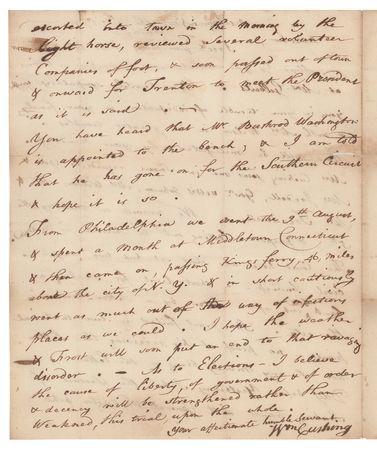 escorted into town in the morning by the
light horse, reviewed several volunteer
Companies of foot, & soon passed out of town
& onward for Trenton to meet the President
as it is said. —
You have heard that Mr Bushrod Washington
is appointed to the bench, & I am told
that he has gone on for the Southern Circuit
& hope it is so.
From Philadelphia we went the 9th August,
& spent a month at Middletown Connecticut
& then came on, passing Kings ferry, 46 miles
above the city of N. Y. & in short cautiously
went as much out of the way of infectious
places as we could. I hope the weather
& Frost will soon put an end to that ravaging
disorder. — As to Elections — I believe
the cause of liberty, of government & of order
& decency will be strengthened rather than
Weakened, this trial upon the whole.
Your affectionate humble Servant
Wm Cushing